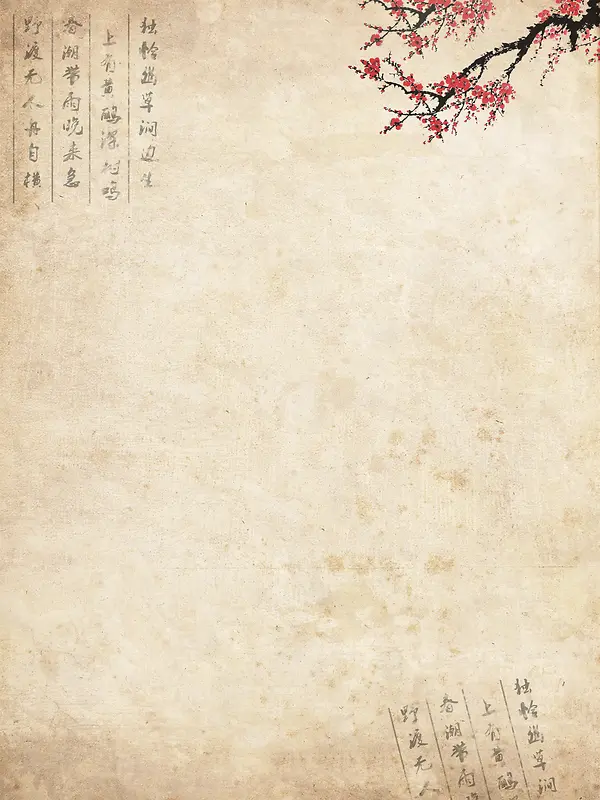 独怜幽草涧边生
上有黄鹂深树鸣
春潮带雨晚来急
野渡无人舟自横
独怜幽草涧
上有黄鹂
春潮带雨
野渡无人